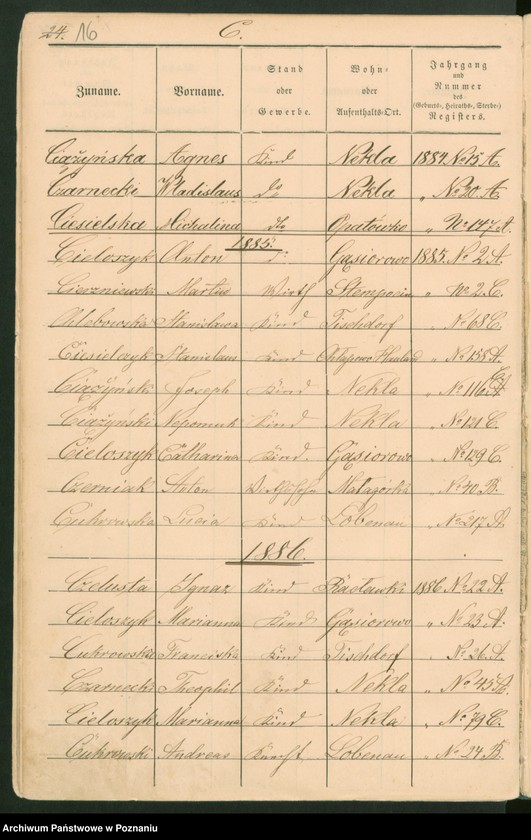 24. 16 C.
Zuname. Vorname. Stand oder Gewerbe. Wohn- oder Aufenthalts-Ort. Jahrgang und Nummer des (Geburts-, Heiraths-, Sterbe-) Registers.
Ciążyńska Agnes Kind Nekla 1884 No 15 A.
Czarnecki Wladislaus do Nekla " No 20 A.
Ciesielska Michalina do Opatówko " No 147 A.
1885.
Cieloszyk Anton Gąsiorowo 1885 No 2 A.
Martin Wirth " No 2 C.
Chlebowska Stanislawa Kind Tischdorf " No 68 C.
Ciesielczyk Stanislaus Kind " No 158 A.
Ciążyński Joseph Kind Nekla " No 116
Ciążyński Nepomuk Kind Nekla " No 121 C.
Cieloszyk Catharina Kind Gąsiorowo " No 129 C.
Czerniak Anton " No 40 B.
Cukrowska Lucia Kind Lobenau " No 217 A.
1886.
Czelusta Ignaz Kind Racławki 1886 No 22 A.
Cieloszyk Marianna Kind Gąsiorowo " No 23 A.
Cukrowska Franciska Kind Tischdorf " No 26 A.
Czarnecki Theophil Kind Nekla " No 45 A.
Cieloszyk Marianna Kind Nekla " No 79 C.
Cukrowski Andreas Knecht Lobenau " No 24 B.
Archiwum Państwowe w Poznaniu